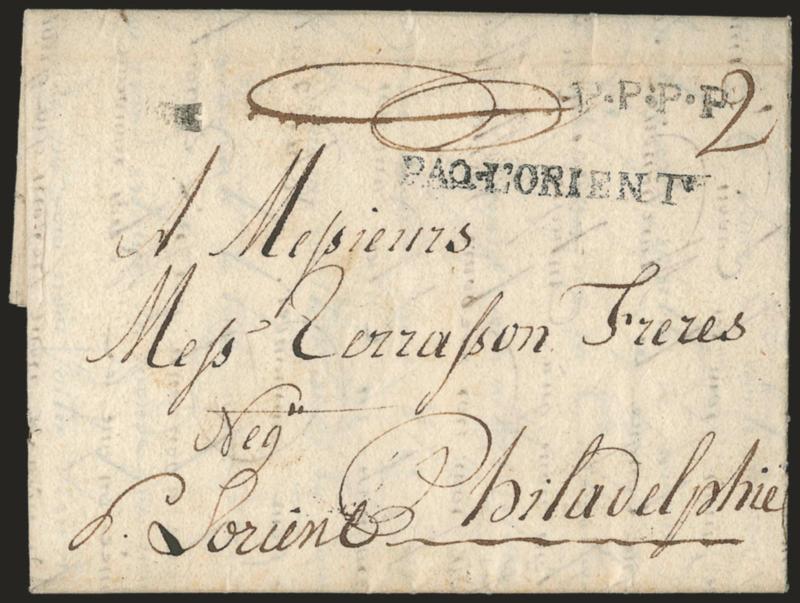 P·P·P·P 2
PAQ·L'ORIENT
A Meſsieurs
Meſs Terraſson Freres
Neg.ts
p. Lorient Philadelphie